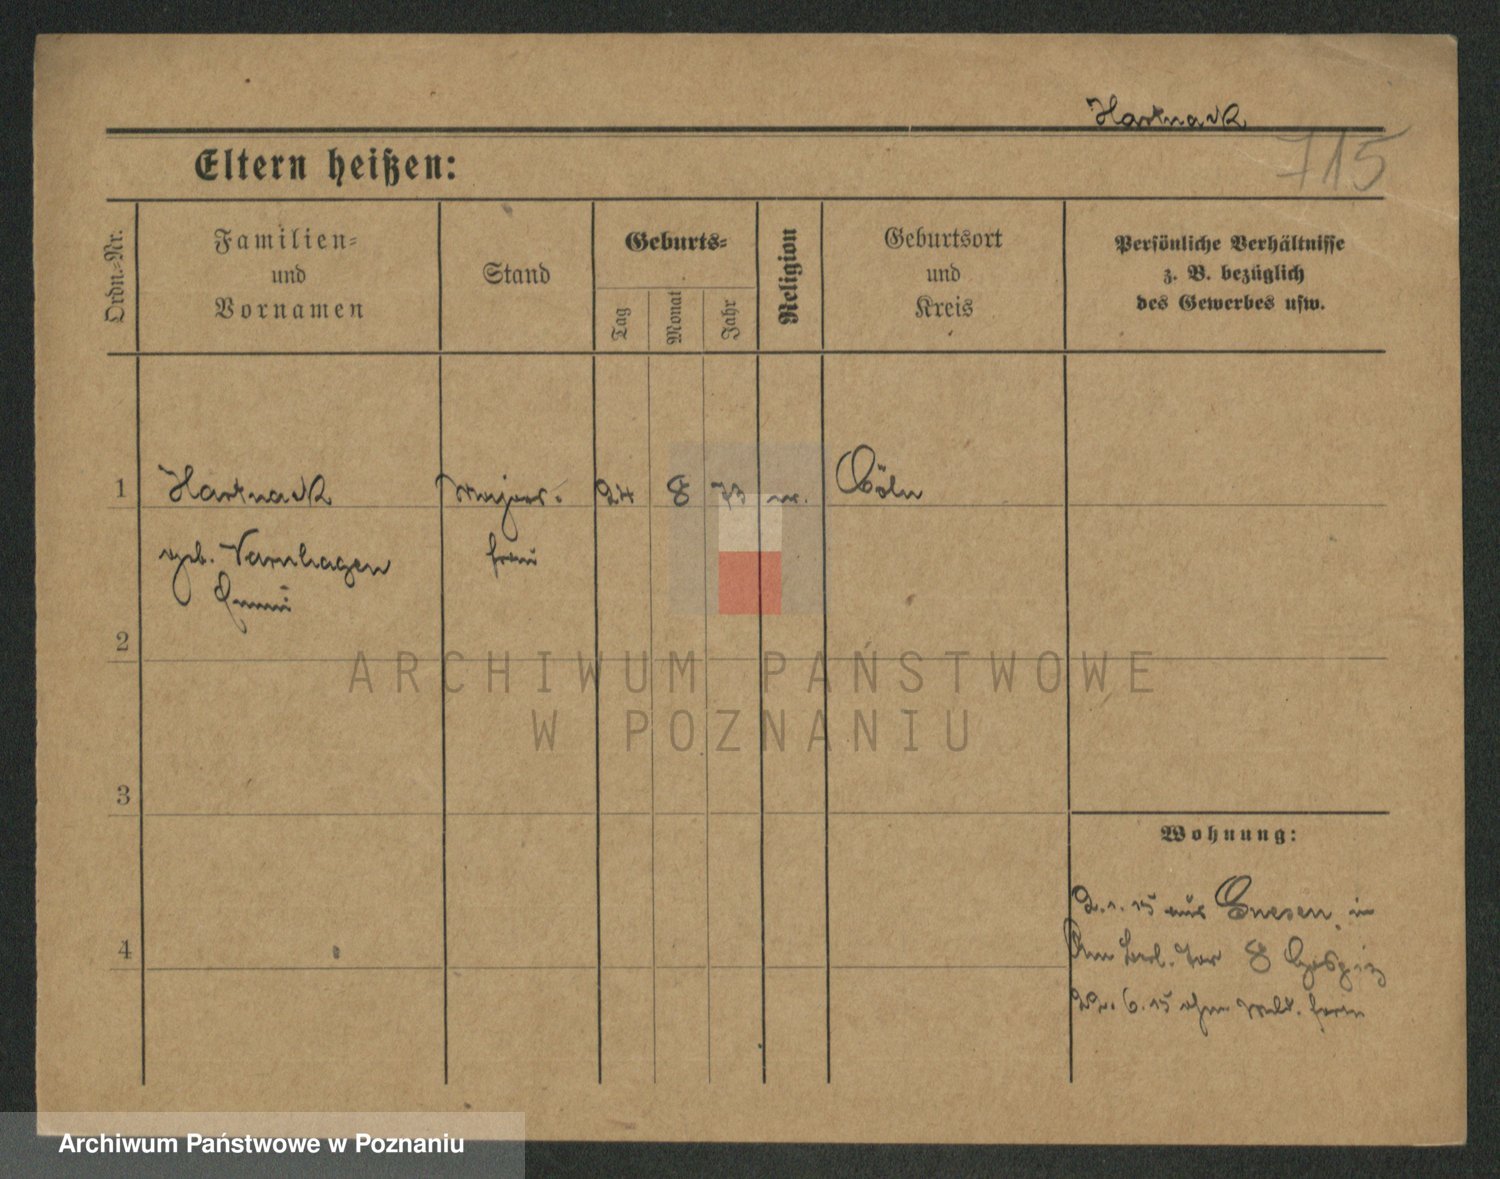 Hartnack
715
Eltern heißen:
Ordn.-Nr.
Familien-
und
Vornamen
Stand
Geburts-
Tag
Monat
Jahr
Religion
Geburtsort
und
Kreis
Persönliche Verhältnisse
z. B. bezüglich
des Gewerbes usw.
1
Hartnack
Majors-
24
8
73
Cöln
geb. Varnhagen
frau
Emmi
2
3
4
Wohnung:
2. 1. 15 aus Gnesen, in
Am Berl. Tor 8 Hospiz
6. 15 ohne Meld. fort
ARCHIWUM PAŃSTWOWE
W POZNANIU
Archiwum Państwowe w Poznaniu